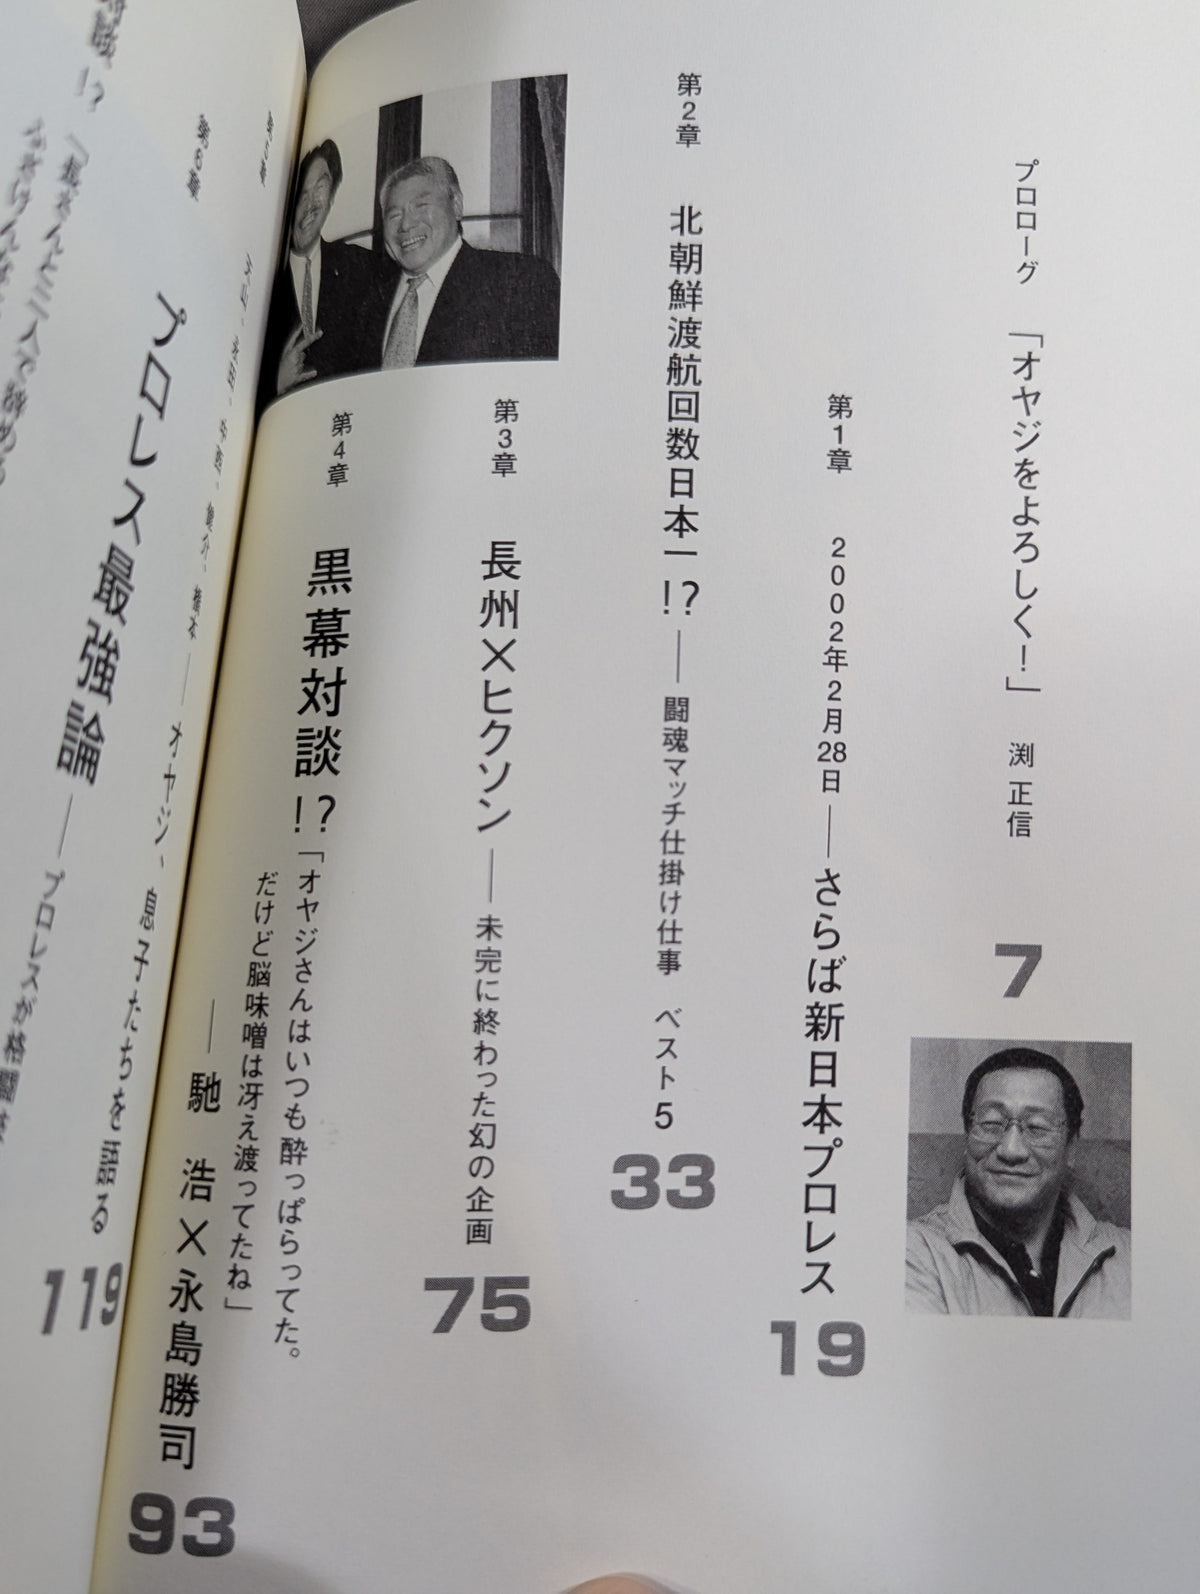 プロローグ 「オヤジをよろしく！」 渕 正信 7
第1章 2002年2月28日──さらば新日本プロレス 19
第2章 北朝鮮渡航回数日本一!?──闘魂マッチ仕掛け仕事 ベスト5 33
第3章 長州×ヒクソン──未完に終わった幻の企画 75
第4章 黒幕対談!?「オヤジさんはいつも酔っぱらってた。
だけど脳味噌は冴え渡ってたね」
──馳 浩×永島勝司 93
橋本──オヤジ、息子たちを語る 119
第6章 プロレス最強論──プロレスが格闘